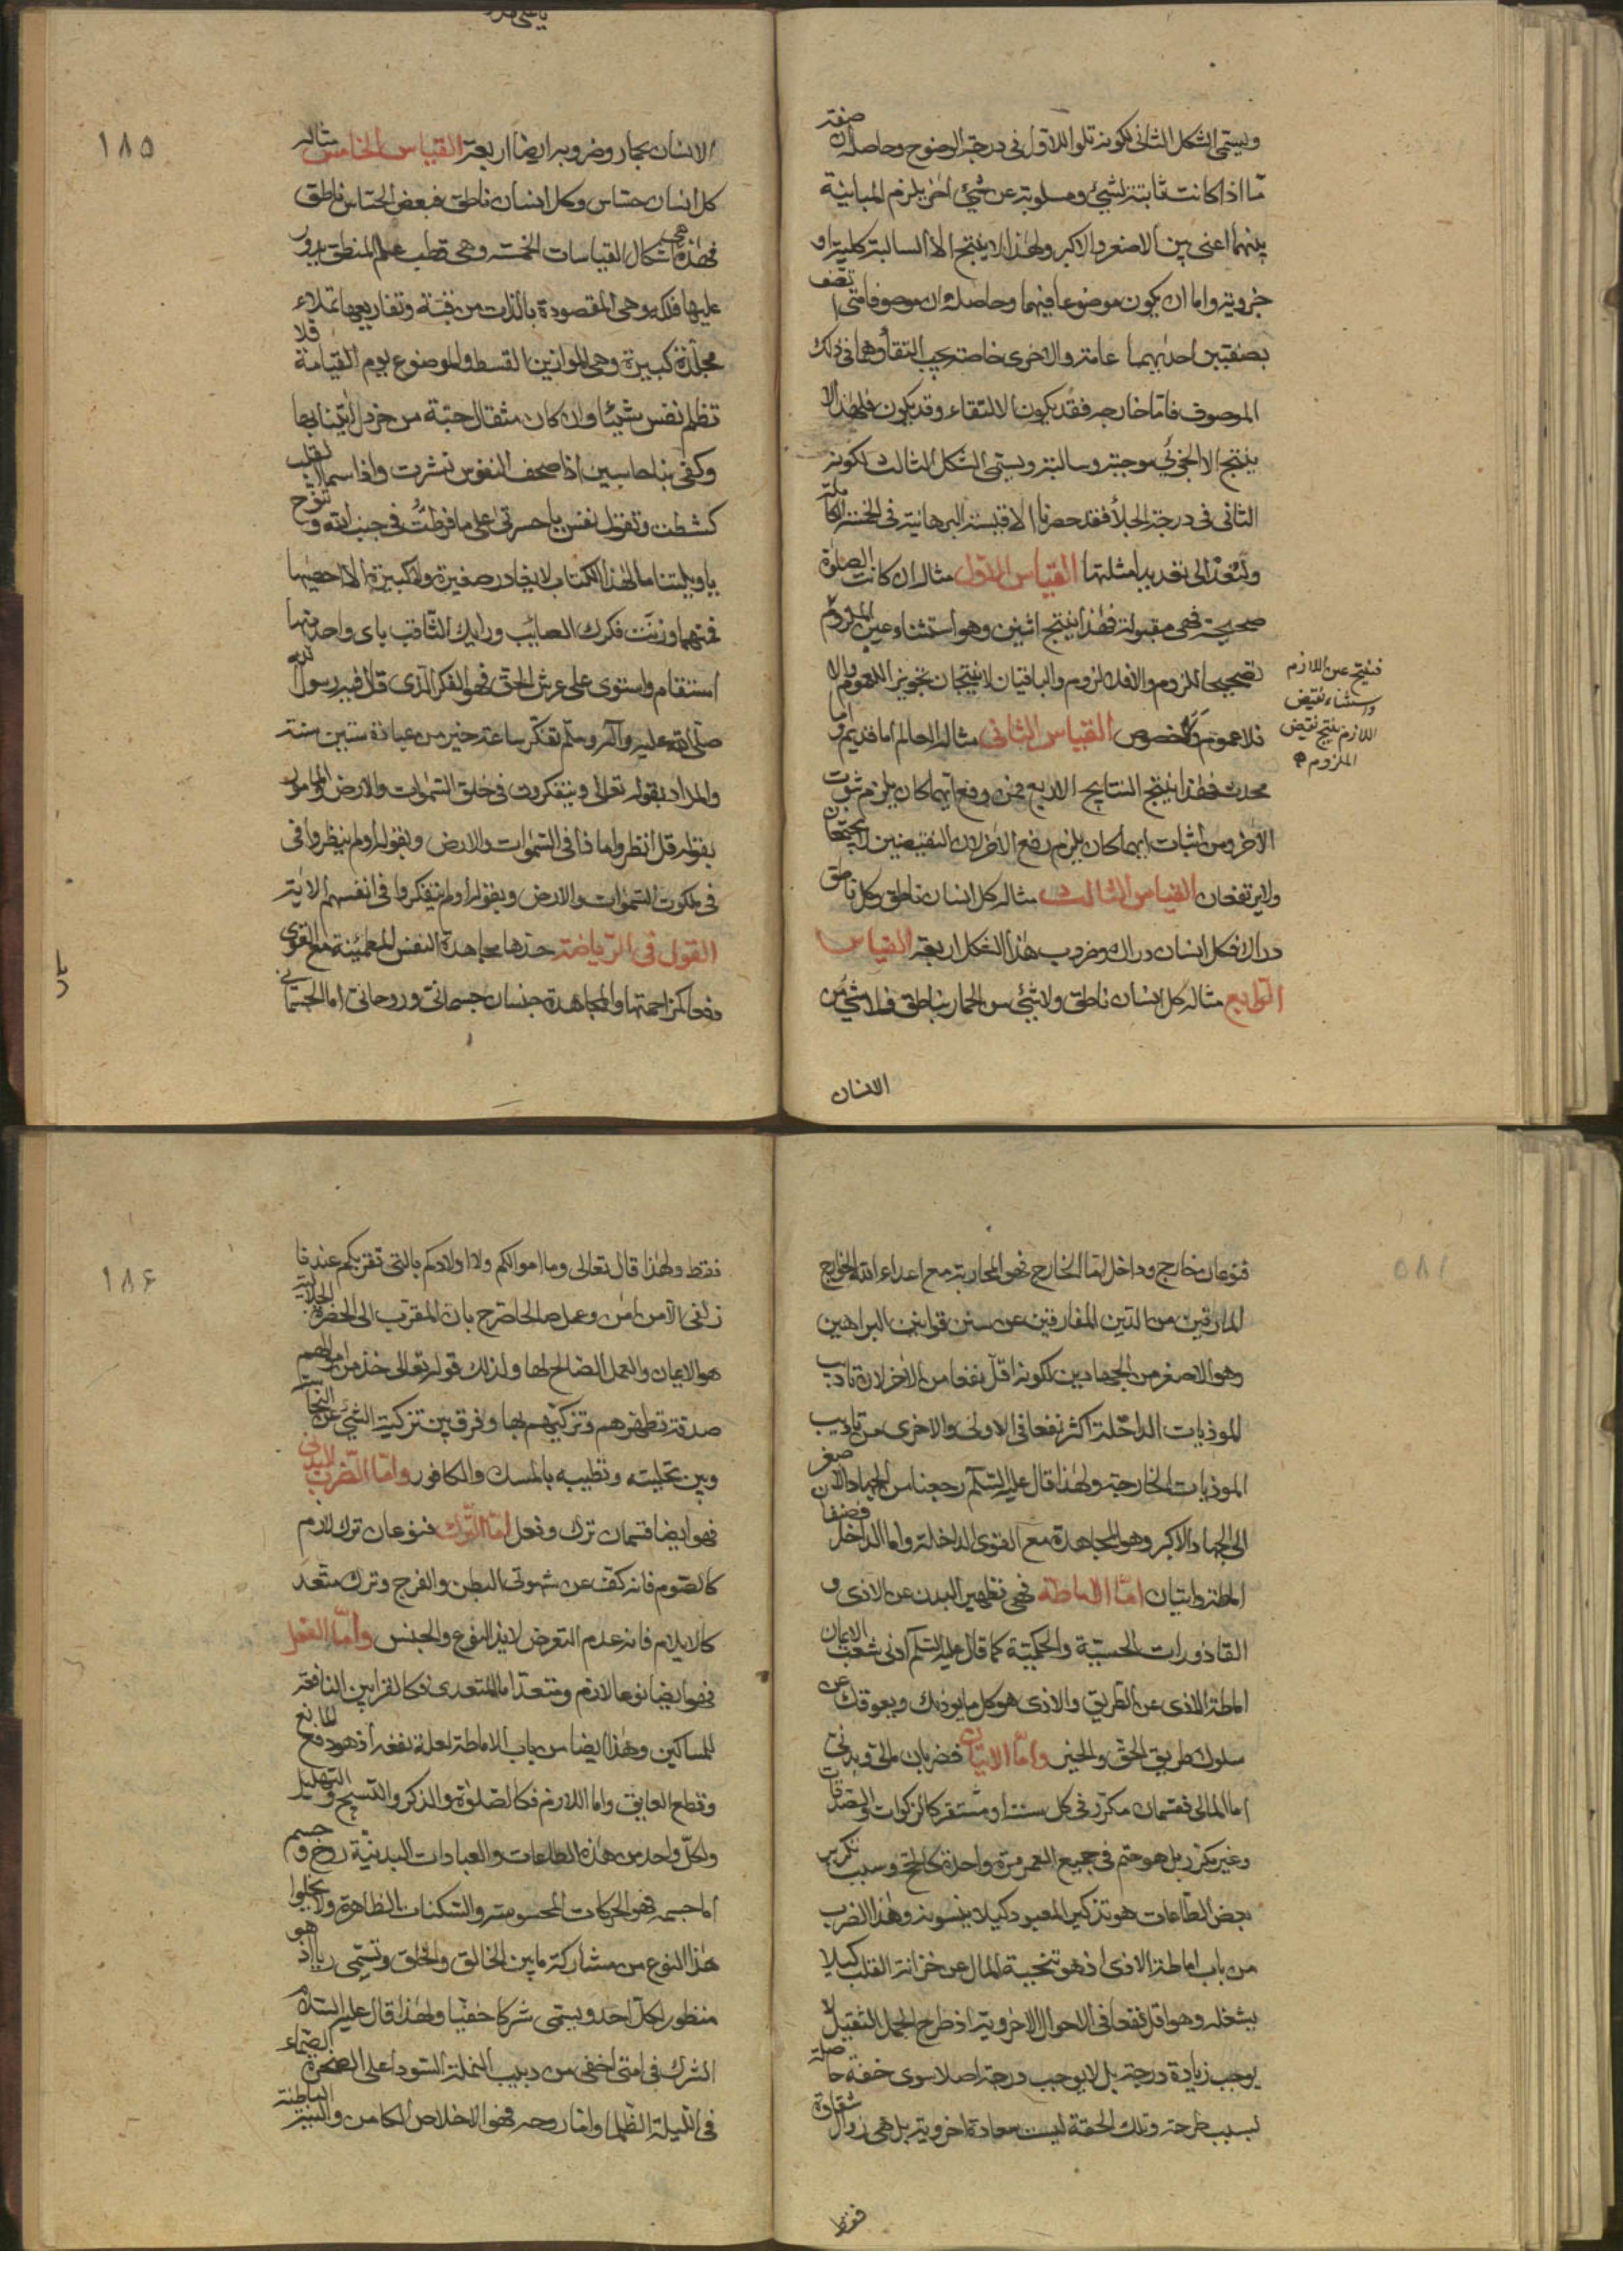 ويسمى الشكل الثانى لكونه تلو اللاول فى درجة الوضوح وحاصله ان صفة
ما اذا كانت ثابتة لشيئ ومسلوبة عن شيئ اخر يلزم المباينة
بينهما اعنى بين الاصغر والاكبر ولهذا لا ينتج الا السالبة كلية او
جزوية واما ان يكون موضوعا فيهما وحاصله ان موصوفا متى اتصف
بصفتين احديهما عامة والاخرى خاصة يجب التقاوهما فى ذلك
الموصوف فاما خارجه فقد يكون الالتقاء وقد يكون فلهذا لا
ينتج الا الجزئى موجبة وسالبة ويسمى الشكل الثالث لكونه
الثانى فى درجة الجلأ فقد حصرنا الاقيسة البرهانية فى الخمسة الكاملة
ولنعد الى تعديد امثلتها القياس الاول مثاله ان كانت الصلوة
صحيحة فهى مقبولة فهذا ينتج اثنين وهو استثناء عين الملزوم
فينتج عين اللازم
واستثناء نقيض
اللازم ينتج نقيض
الملزوم
تصحيحا للزوم والا فلا لزوم والباقيان لا ينتجان تجويز اللعموم والا
فلا عموم ولا خصوص القياس الثانى مثاله العالم اما قديم واما
محدث فهذا ينتج النتايج الاربع فمن رفع ايهما كان يلزم ثبوت
الاخر ومن اثبات ايهما كان يلزم رفع الاخر لان النقيضين لا يجتمعان
ولا يرتفعان القياس الثالث مثاله كل انسان ناطق وكل ناطق
دراك فكل انسان دراك وضروب هذا الشكل اربعة القياس
الرابع مثاله كل انسان ناطق ولا شيئ من الحمار بناطق فلا شيئ من
الانسان
١٨٥
الانسان بحمار وضروبه ايضا اربعة القياس الخامس مثاله
كل انسان حساس وكل انسان ناطق فبعض الحساس ناطق
فهذه هى اشكال القياسات الخمسة وهى قطب علم المنطق يدور
عليها فلكه وهى المقصودة بالذات من فنه وتفاريعها تملاء
مجلدة كبيرة وهى الموازين القسط والموضوع يوم القيامة فلا
تظلم نفس شيئا وان كان مثقال حبة من خردل اتينا بها
وكفى بنا حاسبين اذا صحف النفوس نشرت واذا سماء القلب
كشطت وتقول نفس يا حسرتى على ما فرطت فى جنب الله و
يا ويلتنا ما لهذا الكتاب لا يغادر صغيرة ولا كبيرة الا احصيها
فمهما وزنت فكرك الصائب ورايك الثاقب باى واحد منها
استقام واستوى على عرش الحق فهو الفكر الذى قال فيه رسول الله
صلى الله عليه وآله وسلم تفكر ساعة خير من عبادة ستين سنة
والمراد بقوله تعالى ويتفكرون فى خلق السموات والارض والمامور
بقوله قل انظروا ما ذا فى السموات والارض وبقوله اولم ينظروا فى
فى ملكوت السموات والارض وبقوله اولم يتفكروا فى انفسهم الاية
القول فى الرياضة حدها مجاهدة النفس المطمئنة مع القوى
ودفعا لمزاحمتها والمجاهدة جنسان جسمانى وروحانى اما الجسمانى
فنوعان خارج وداخل اما الخارج فهو المحاربة مع اعداء الله الخوارج
المارقين من الدين المفارقين عن سنن قوانين البراهين
وهو الاصغر من الجهادين لكونه اقل نفعا من الاخر لان تاديب
الموذيات الداخلة اكثر نفعا فى الاولى والاخرى من تاديب
الموذيات الخارجة ولهذا قال عليه السلام رجعنا من الجهاد الاصغر
الى الجهاد الاكبر وهو المجاهدة مع القوى الداخلة واما الداخل فصنفان
اماطة واتيان اما الاماطة فهى تطهير البدن عن الاذى و
القاذورات الحسية والحكمية كما قال عليه السلام ادنى شعب الايمان
اماطة الاذى عن الطريق والاذى هو كل ما يوذيك ويعوقك عن
سلوك طريق الحق والخير واما الاتيان فضربان مالى وبدنى
اما المالى فقسمان مكرر فى كل سنة او مستقر كالزكوات والصدقات
وغير مكرر بل هو حتم فى جميع العمر مرة واحدة كالحج وسبب تكرير
بعض الطاعات هو تذكير المعبود كيلا ينسونه وهذا الضرب
من باب اماطة الاذى اذ هو تنحية المال عن خزانة القلب كيلا
يشغله وهو اقل نفعا فى الاحوال الاخروية اذ طرح الحمل الثقيل لا
يوجب زيادة درجة بل لا يوجب درجة اصلا سوى خفة حاصلة
بسبب طرحه وتلك الخفة ليست سعادة اخروية بل هى زوال شقاوة
فقط
١٨٦
فقط ولهذا قال تعالى وما اموالكم ولا اولادكم بالتى تقربكم عندنا
زلفى الا من امن وعمل صالحا صرح بان المقرب الى الحضرة الجلالية
هو الايمان والعمل الصالح لها ولذلك قوله تعالى خذ من اموالهم
صدقة تطهرهم وتزكيهم بها وفرق بين تزكية الشيئ عن النجاسة
وبين تحليته وتطييبه بالمسك والكافور واما الضرب البدنى
فهو ايضا قسمان ترك وفعل اما الترك فنوعان ترك لازم
كالصوم فانه كف عن شهوتى البطن والفرج وترك متعد
كالايلام فانه عدم التعرض لايذا النوع والجنس واما الفعل
فهو ايضا نوعا لازم ومتعد اما المتعدى فكالقرابين النافعة
للمساكين وهذا ايضا من باب الاماطة لعلة نفعه اذ هو دفع المانع
وقطع العايق واما اللازم فكالصلوة والذكر والتسبيح والتهليل
ولكل واحد من هذه الطاعات والعبادات البدنية روح وجسم
اما جسمه فهو الحركات المحسوسة والسكنات الظاهرة ولا يخلوا
هذا النوع من مشاركة ما بين الخالق والخلق وتسمى ريا اذ هو
منظور لكل احد ويسمى شركا خفيا ولهذا قال عليه السلام
الشرك فى امتى اخفى من دبيب النملة السوداء على الصخرة الصماء
فى الليلة الظلما واما روحه فهو الاخلاص الكامن والنية الباطنة